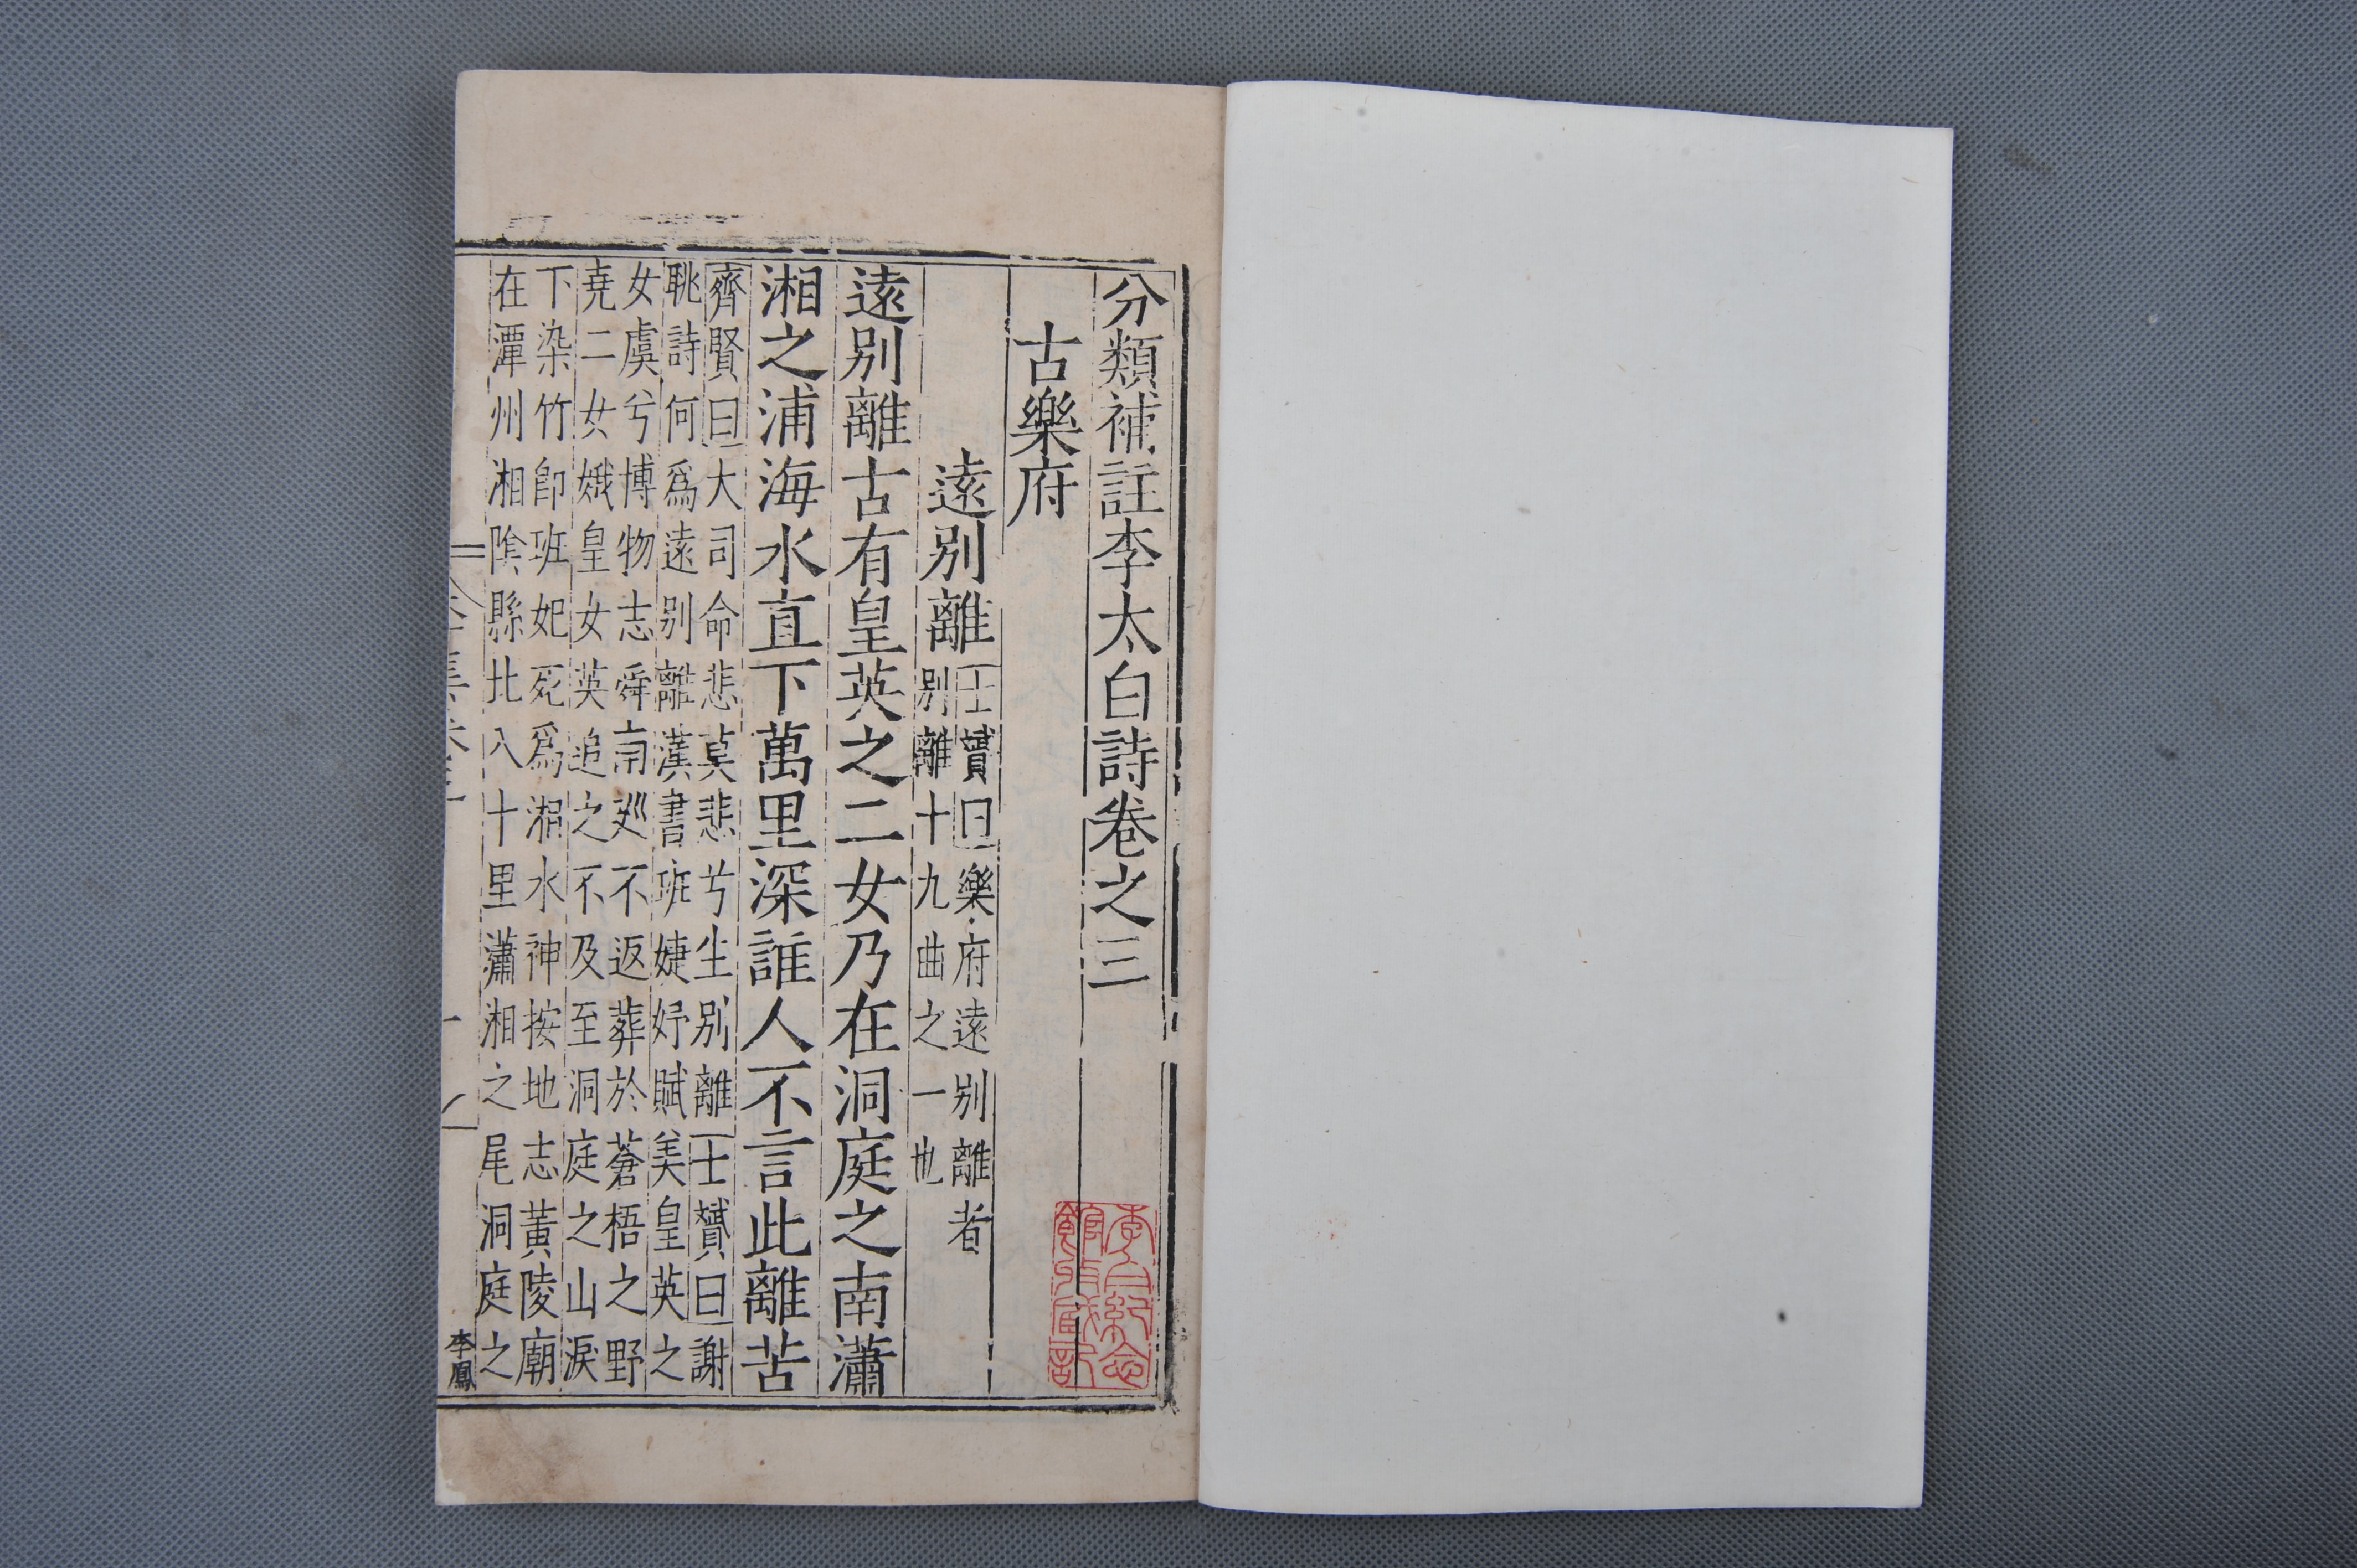 分類補註李太白詩卷之三
古樂府
遠别離
士贇曰樂府遠别離者
别離十九曲之一也
遠别離古有皇英之二女乃在洞庭之南瀟
湘之浦海水直下萬里深誰人不言此離苦
齊賢曰大司命悲莫悲兮生别離士贇曰謝
眺詩何爲遠别離漢書班婕妤賦美皇英之
女虞兮博物志舜南廵不返葬於蒼梧之野
堯二女娥皇女英追之不及至洞庭之山淚
下染竹卽班妃死爲湘水神按地志黄陵廟
在潭州湘隂縣北八十里瀟湘之尾洞庭之
李鳳
李白紀念
館收藏記